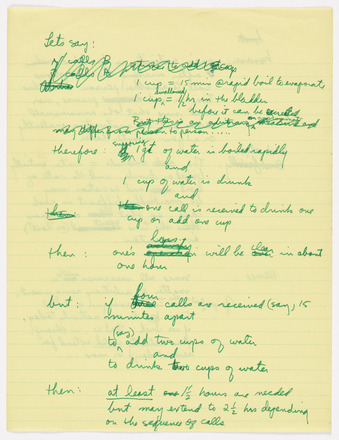 Lets say:
1 cup = 15 min @ rapid boil to evaporate
1 cup swallowed = 1/2 hr in the bladder
before it can be
But this is
may differ from person to person .....
therefore: supposing 1 qt of water is boiled rapidly
and
1 cup of water is drunk
and
then one call is received to drink one
cup or add one cup
then: one's will be in about
one hour
but: if four calls are received (say) 15
minutes apart
to (say) add two cups of water
and
to drink two cups of water
then: at least 1 1/2 hours are needed
but may extend to 2 1/2 hrs depending
on the sequence of calls